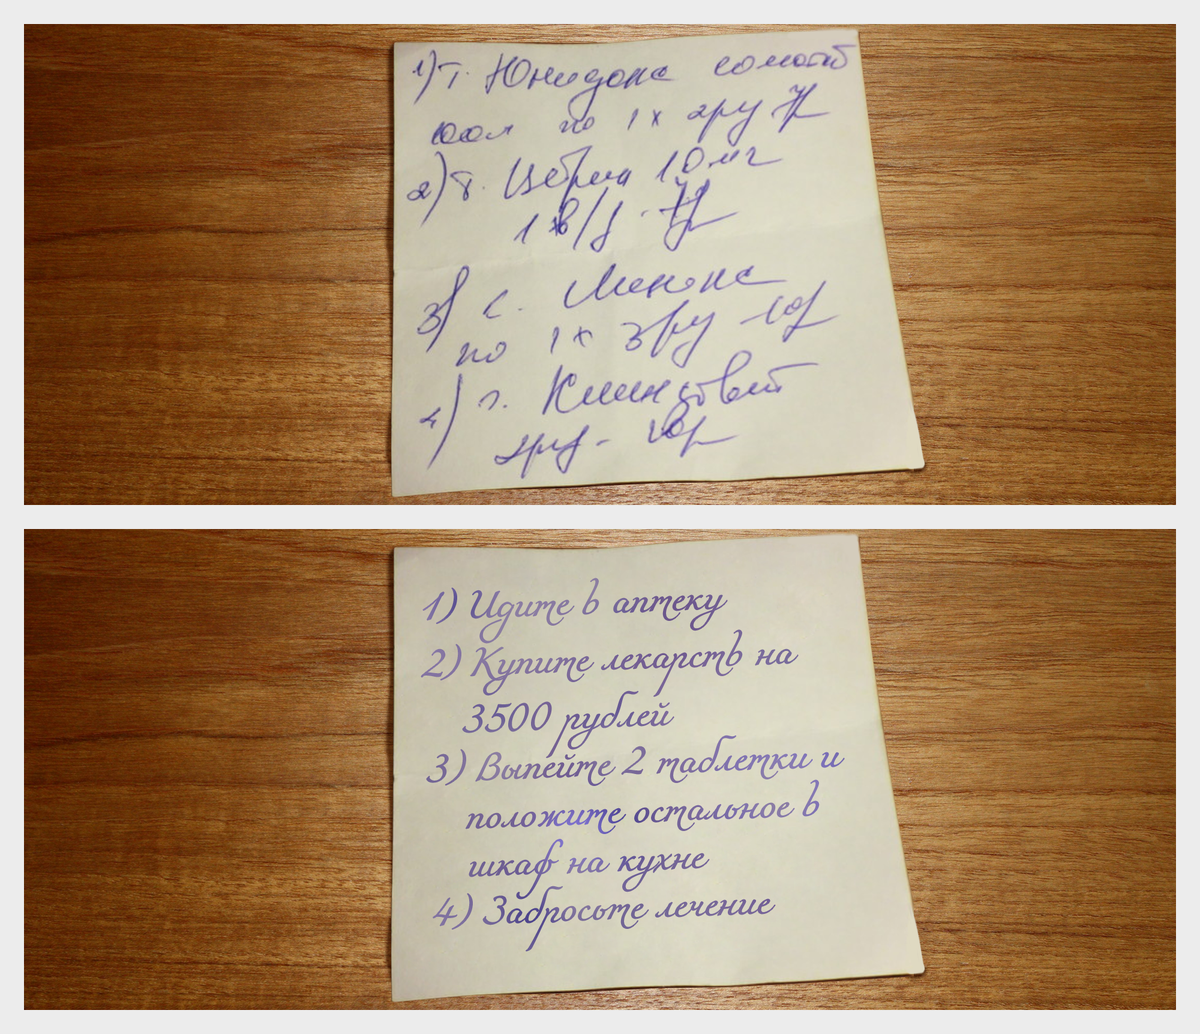 1) т. Юнидокс солютаб
по 1 х 2 р/д 7 д
2) т. Цетрин 10 мг
1 х в/д - 7 д
3) с.
по 1 х 3 р/д - 10 д
4) г. Клиндовит
2 р/д - 10 д
1) Идите в аптеку
2) Купите лекарств на
3500 рублей
3) Выпейте 2 таблетки и
положите остальное в
шкаф на кухне
4) Забросьте лечение